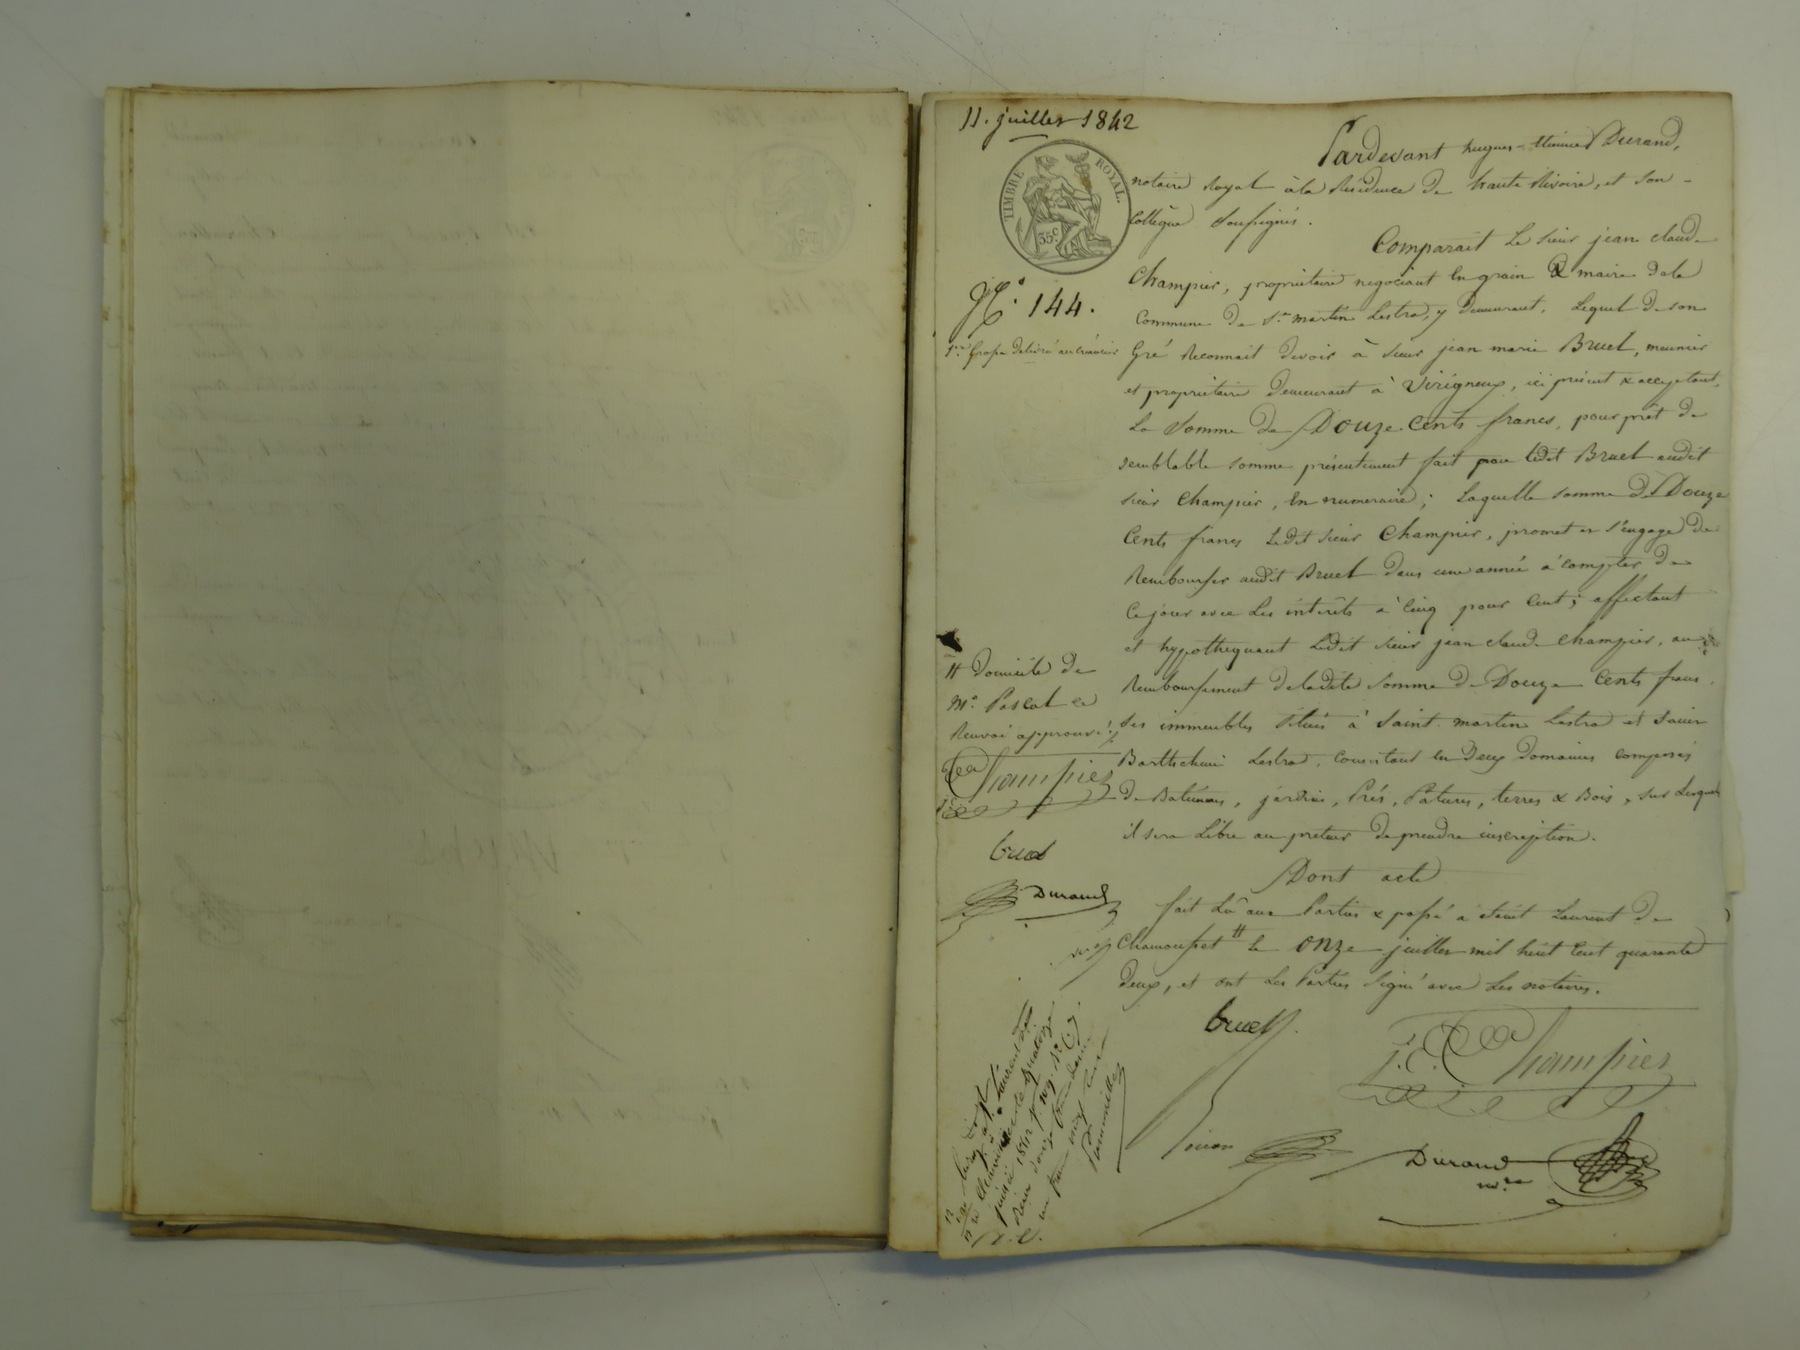 11. juillet 1842
TIMBRE ROYAL.
35c
No. 144.
1re grosse delivré au créancier
Pardevant hugues-étienne Durand,
notaire Royal à la Residence de haute Rivoire, et son
Collègue soussignés.
Comparait le sieur jean claude
Champier, propriétaire negociant en grain & maire dela
Commune de St. martin Lestra, y demeurant, Lequel de son
Gré Reconnait devoir à sieur jean marie Bruel, meunier
et propriétaire demeurant à Virigneux, ici présent & acceptant,
La Somme de Douze Cents francs, pour prêt de
semblable somme présentement fait par ledit Bruel audit
sieur Champier, en numeraire; Laquelle somme de Douze
Cents francs Ledit sieur Champier, promet et s'engage de
Rembourser audit Bruel dans une année à compter de
Ce jour avec Les intérêts à Cinq pour Cent; affectant
et hypothequant Ledit sieur jean claude Champier, au
Remboursement deladite Somme de Douze Cents francs
ses immeubles situés à Saint martin Lestra et Saint
Barthelemi Lestra, Consistant en deux domaines composés
de Batimens, jardins, Prés, Patures, terres & Bois, sur Lesquels
il sera Libre au preteur de prendre inscription.
Dont acte
fait Lû aux Parties & passé à Saint Laurent de
Chamousset # le onze juillet mil huit Cent quarante
deux, et ont Les Parties Signé avec Les notaires.
# Domicile de
Me. Pascal
Renvoi approuvé
J. C. Champier
bruel
Durand
bruel
J. C. Champier
Durand
nore
St Laurent de
Chamousset le quatorze
juillet 1842
Reçu douze francs
un franc vingt